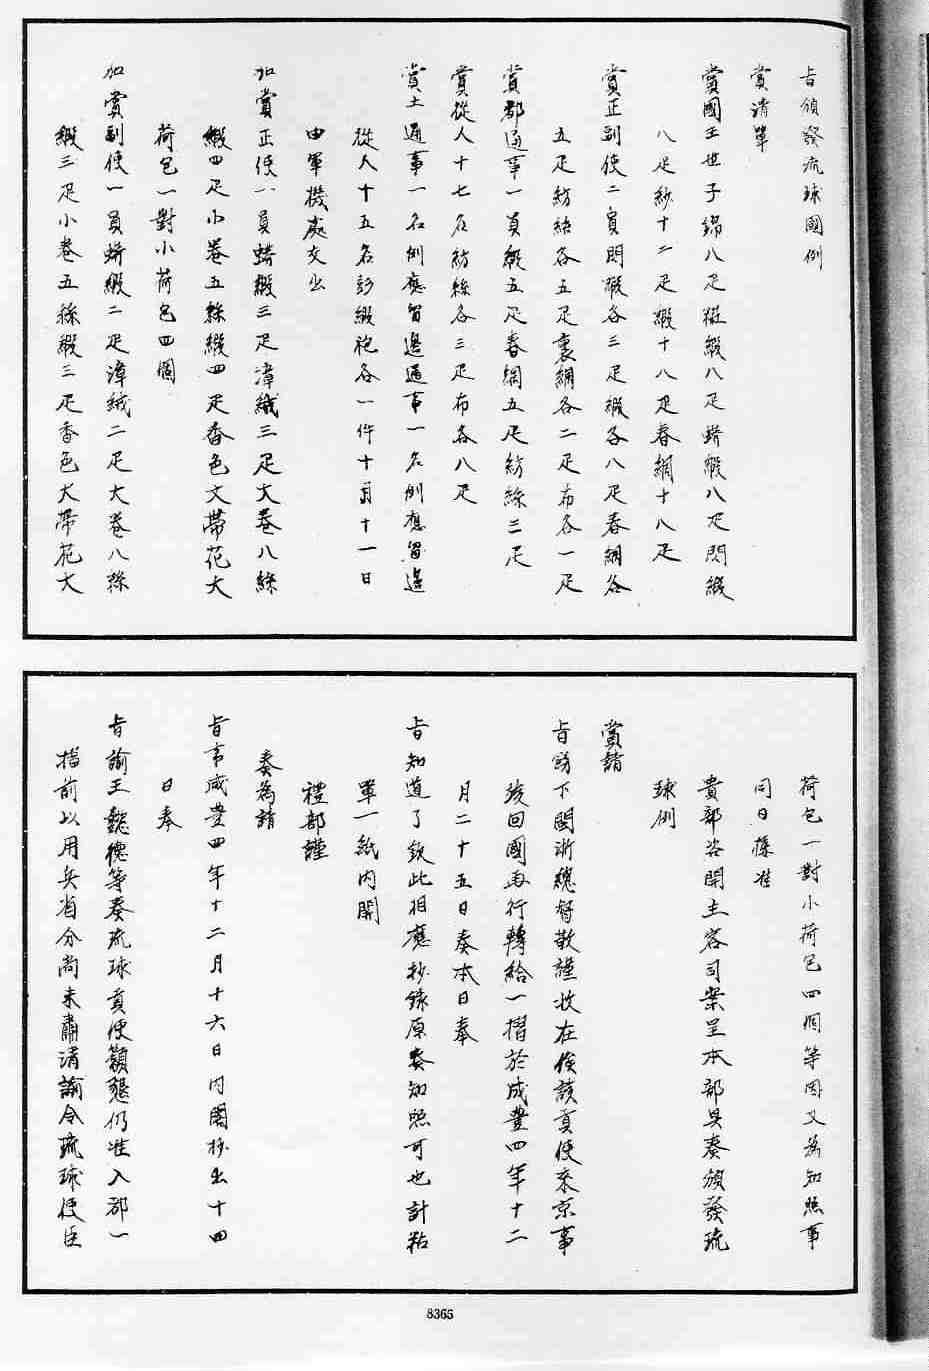 旨頒發琉球國例
賞清單
賞國王世子錦八疋粧緞八疋蟒緞八疋閃緞
八疋紗十二疋緞十八疋春綢十八疋
賞正副使二員閃緞各三疋緞各八疋春綢各
五疋紡絲各五疋裏綢各二疋布各一疋
賞都通事一員緞五疋春綢五疋紡絲三疋
賞從人十七名紡絲各三疋布各八疋
賞土通事一名例應留邊通事一名例應留邊
從人十五名彭緞袍各一件十一月十一日
由軍機處交出
加賞正使一員蟒緞三疋漳絨三疋大卷八絲
緞四疋小卷五絲緞四疋香色大帶花大
荷包一對小荷包四個
加賞副使一員蟒緞二疋漳絨二疋大卷八絲
緞三疋小卷五絲緞三疋香色大帶花大
荷包一對小荷包四個等因又為知照事
同日據准
貴部咨開主客司案呈本部具奏頒發琉
球例
賞請
旨飭下閩浙總督敬謹收在俟該貢使來京事
竣回國再行轉給一摺於咸豐四年十二
月二十五日奏本日奉
旨知道了欽此相應抄錄原奏知照可也計粘
單一紙內開
禮部謹
奏為請
旨事咸豐四年十二月十六日內閣抄出十四
日奉
旨諭王懿德等奏琉球貢使籲懇仍准入都一
摺前以用兵省分尚未肅清諭令琉球使臣
8365